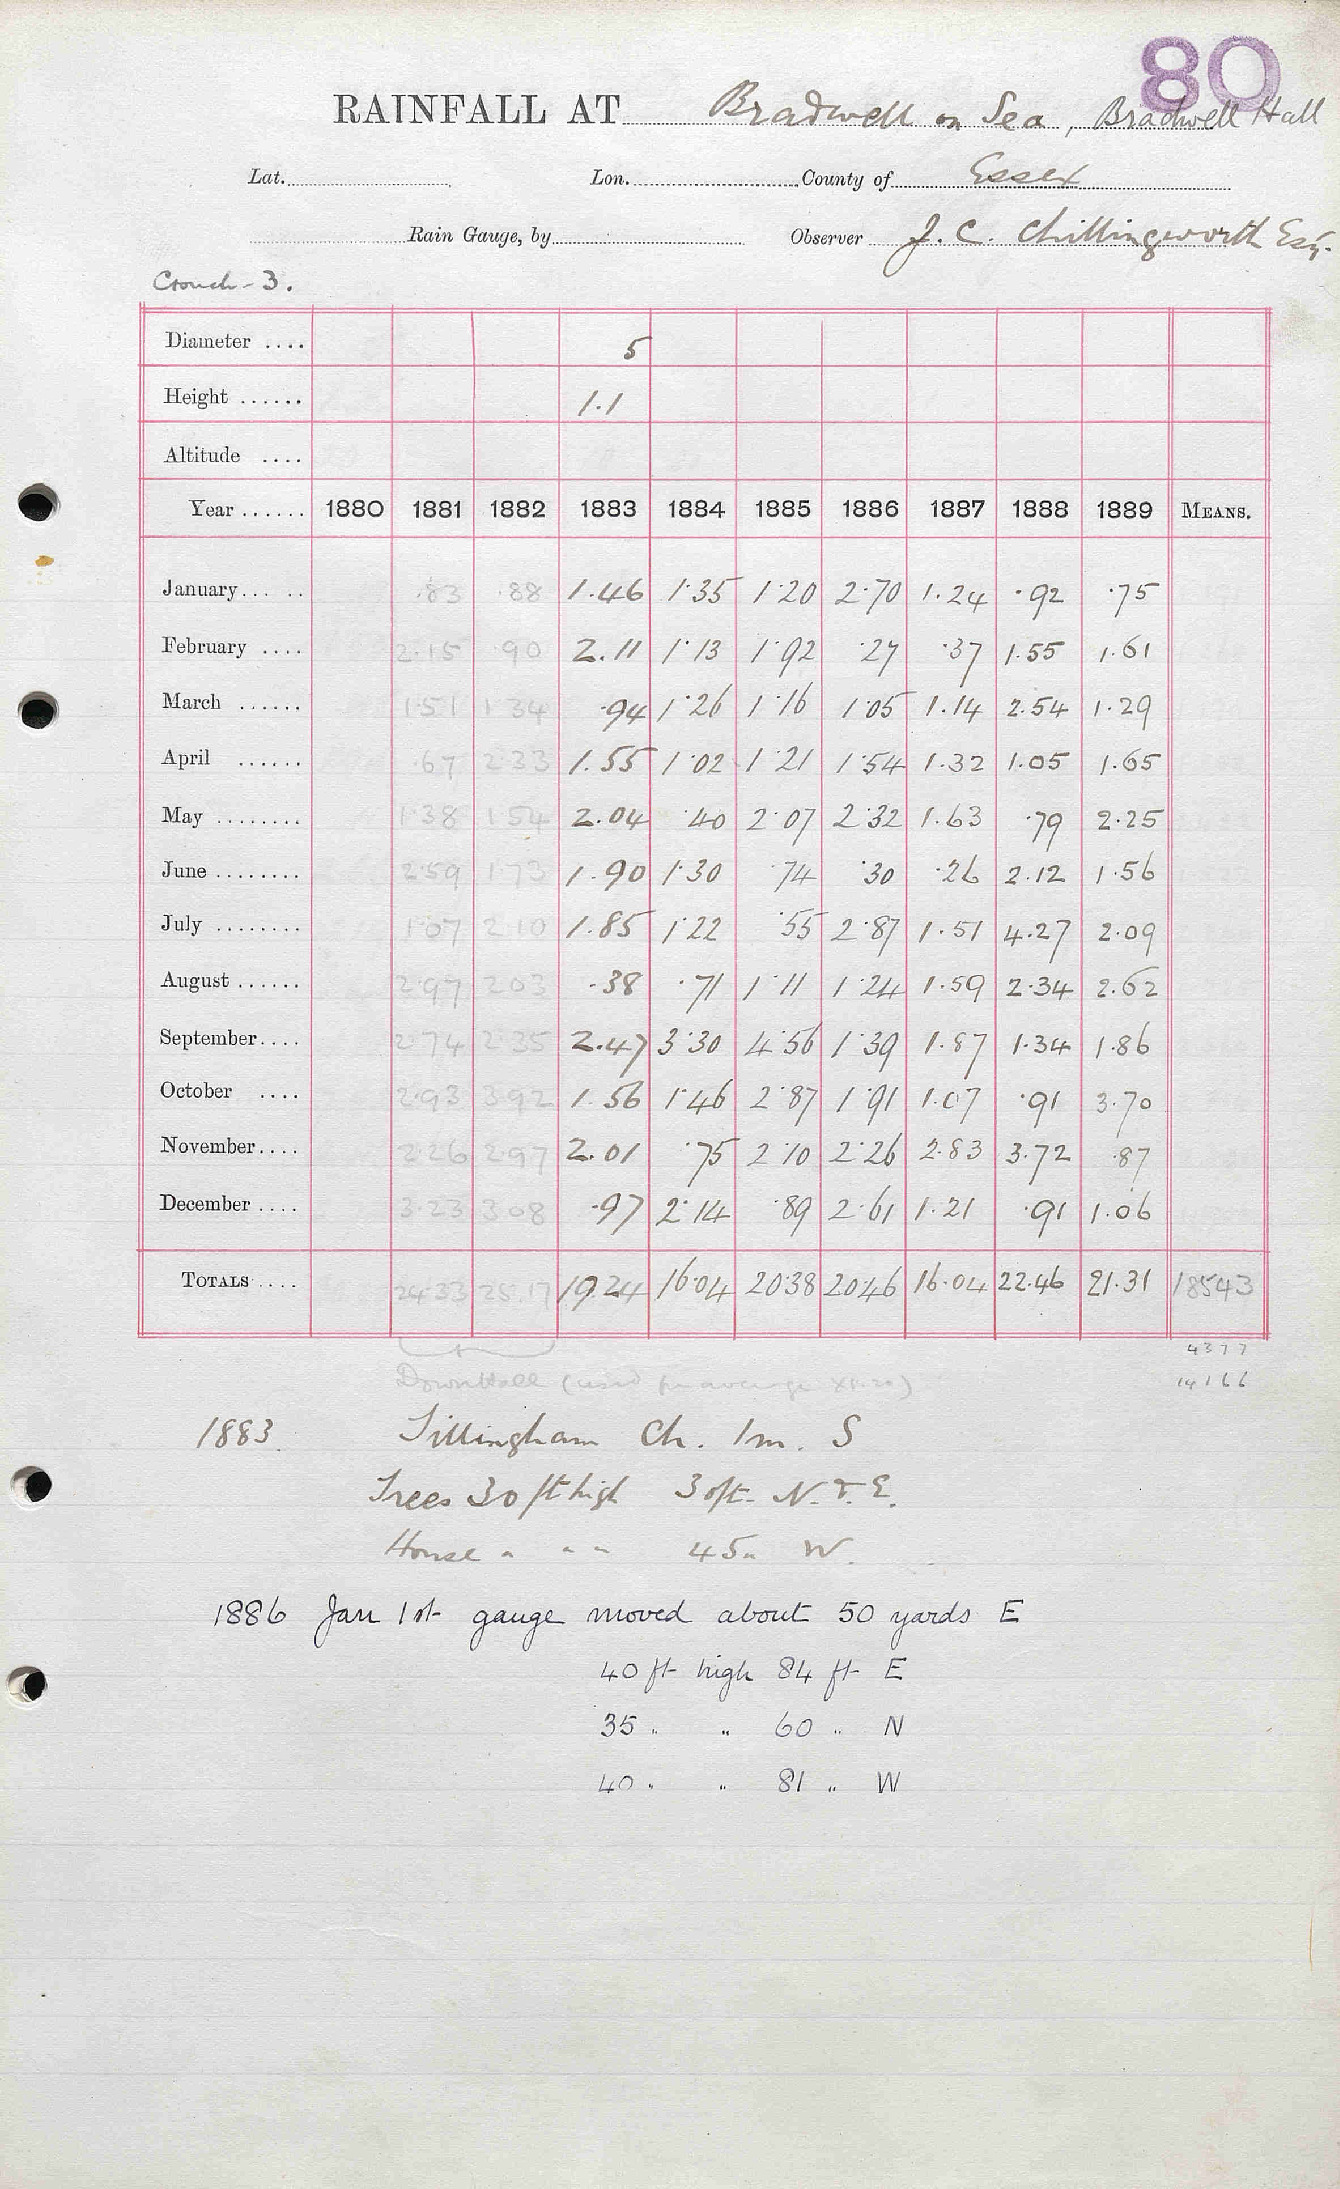 80
RAINFALL AT Bradwell on Sea, Bradwell Hall
Lat. Lon. County of Essex
Rain Gauge, by Observer J. C. Chillingworth Esq.
Crouch - 3.
Diameter .... 5
Height ...... 1.1
Altitude ....
Year ...... 1880 1881 1882 1883 1884 1885 1886 1887 1888 1889 MEANS.
January... .. .83 .88 1.46 1.35 1.20 2.70 1.24 .92 .75
February .... 2.15 .90 2.11 1.13 1.92 .27 .37 1.55 1.61
March ...... 1.51 1.34 .94 1.26 1.16 1.05 1.14 2.54 1.29
April ...... .67 2.33 1.55 1.02 1.21 1.54 1.32 1.05 1.65
May ........ 1.38 1.54 2.04 .40 2.07 2.32 1.63 .79 2.25
June ........ 2.59 1.73 1.90 1.30 .74 .30 .26 2.12 1.56
July ........ 1.07 2.10 1.85 1.22 .55 2.87 1.51 4.27 2.09
August ...... 2.97 2.03 .38 .71 1.11 1.24 1.59 2.34 2.62
September.... 2.74 2.35 2.47 3.30 4.56 1.39 1.87 1.34 1.86
October .... 2.93 3.92 1.56 1.46 2.87 1.91 1.07 .91 3.70
November.... 2.26 2.97 2.01 .75 2.10 2.26 2.83 3.72 .87
December .... 3.23 3.08 .97 2.14 .89 2.61 1.21 .91 1.06
TOTALS .... 24.33 25.17 19.24 16.04 20.38 20.46 16.04 22.46 21.31 18543
4377
14166
Down Hall (used for average
1883. Tillingham Ch. 1m. S
Trees 30 ft high 30ft. N. & E.
House " " " 45 " W.
1886 Jan 1st gauge moved about 50 yards E
40 ft high 84 ft E
35 " " 60 " N
40 " " 81 " W